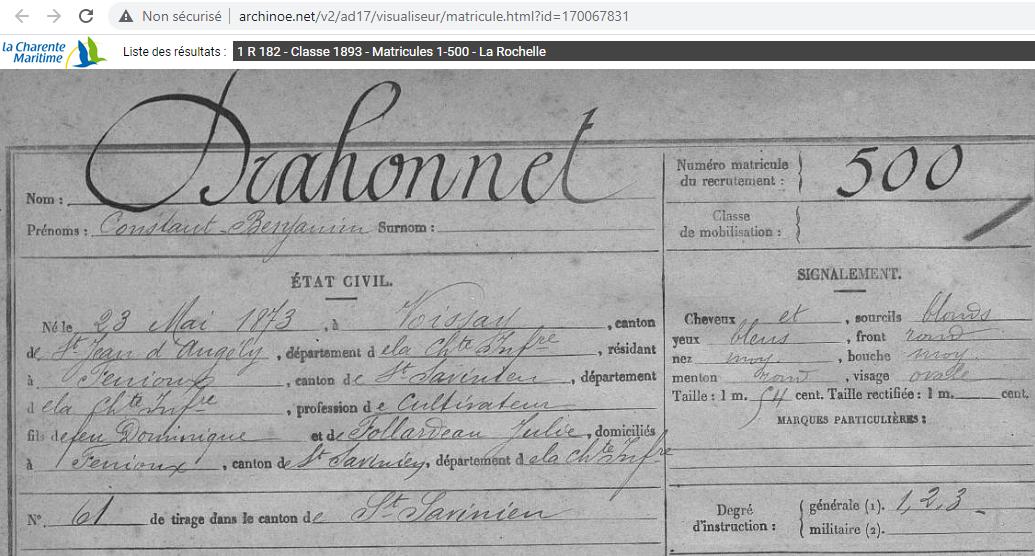 Non sécurisé | archinoe.net/v2/ad17/visualiseur/matricule.html?id=170067831
la Charente
Maritime
Liste des résultats : 1 R 182 - Classe 1893 - Matricules 1-500 - La Rochelle
Nom : Drahonnet
Prénoms : Constant Benjamin Surnom :
Numéro matricule
du recrutement : 500
Classe
de mobilisation :
ÉTAT CIVIL.
Né le 23 Mai 1873, à Voissay, canton
de St Jean d'Angély, département de la Chte Infre, résidant
à Fenioux, canton de St Savinien, département
de la Chte Infre, profession de Cultivateur
fils de feu Dominique et de Follardeau Julie, domiciliés
à Fenioux, canton de St Savinien, département de la Chte Infre
N° 61 de tirage dans le canton de St Savinien
SIGNALEMENT.
Cheveux et, sourcils blonds
yeux bleus, front rond
nez moy, bouche moy.
menton rond, visage ovale
Taille : 1 m. 54 cent. Taille rectifiée : 1 m. cent.
MARQUES PARTICULIÈRES :
Degré
d'instruction :
générale (1). 1, 2, 3
militaire (2).